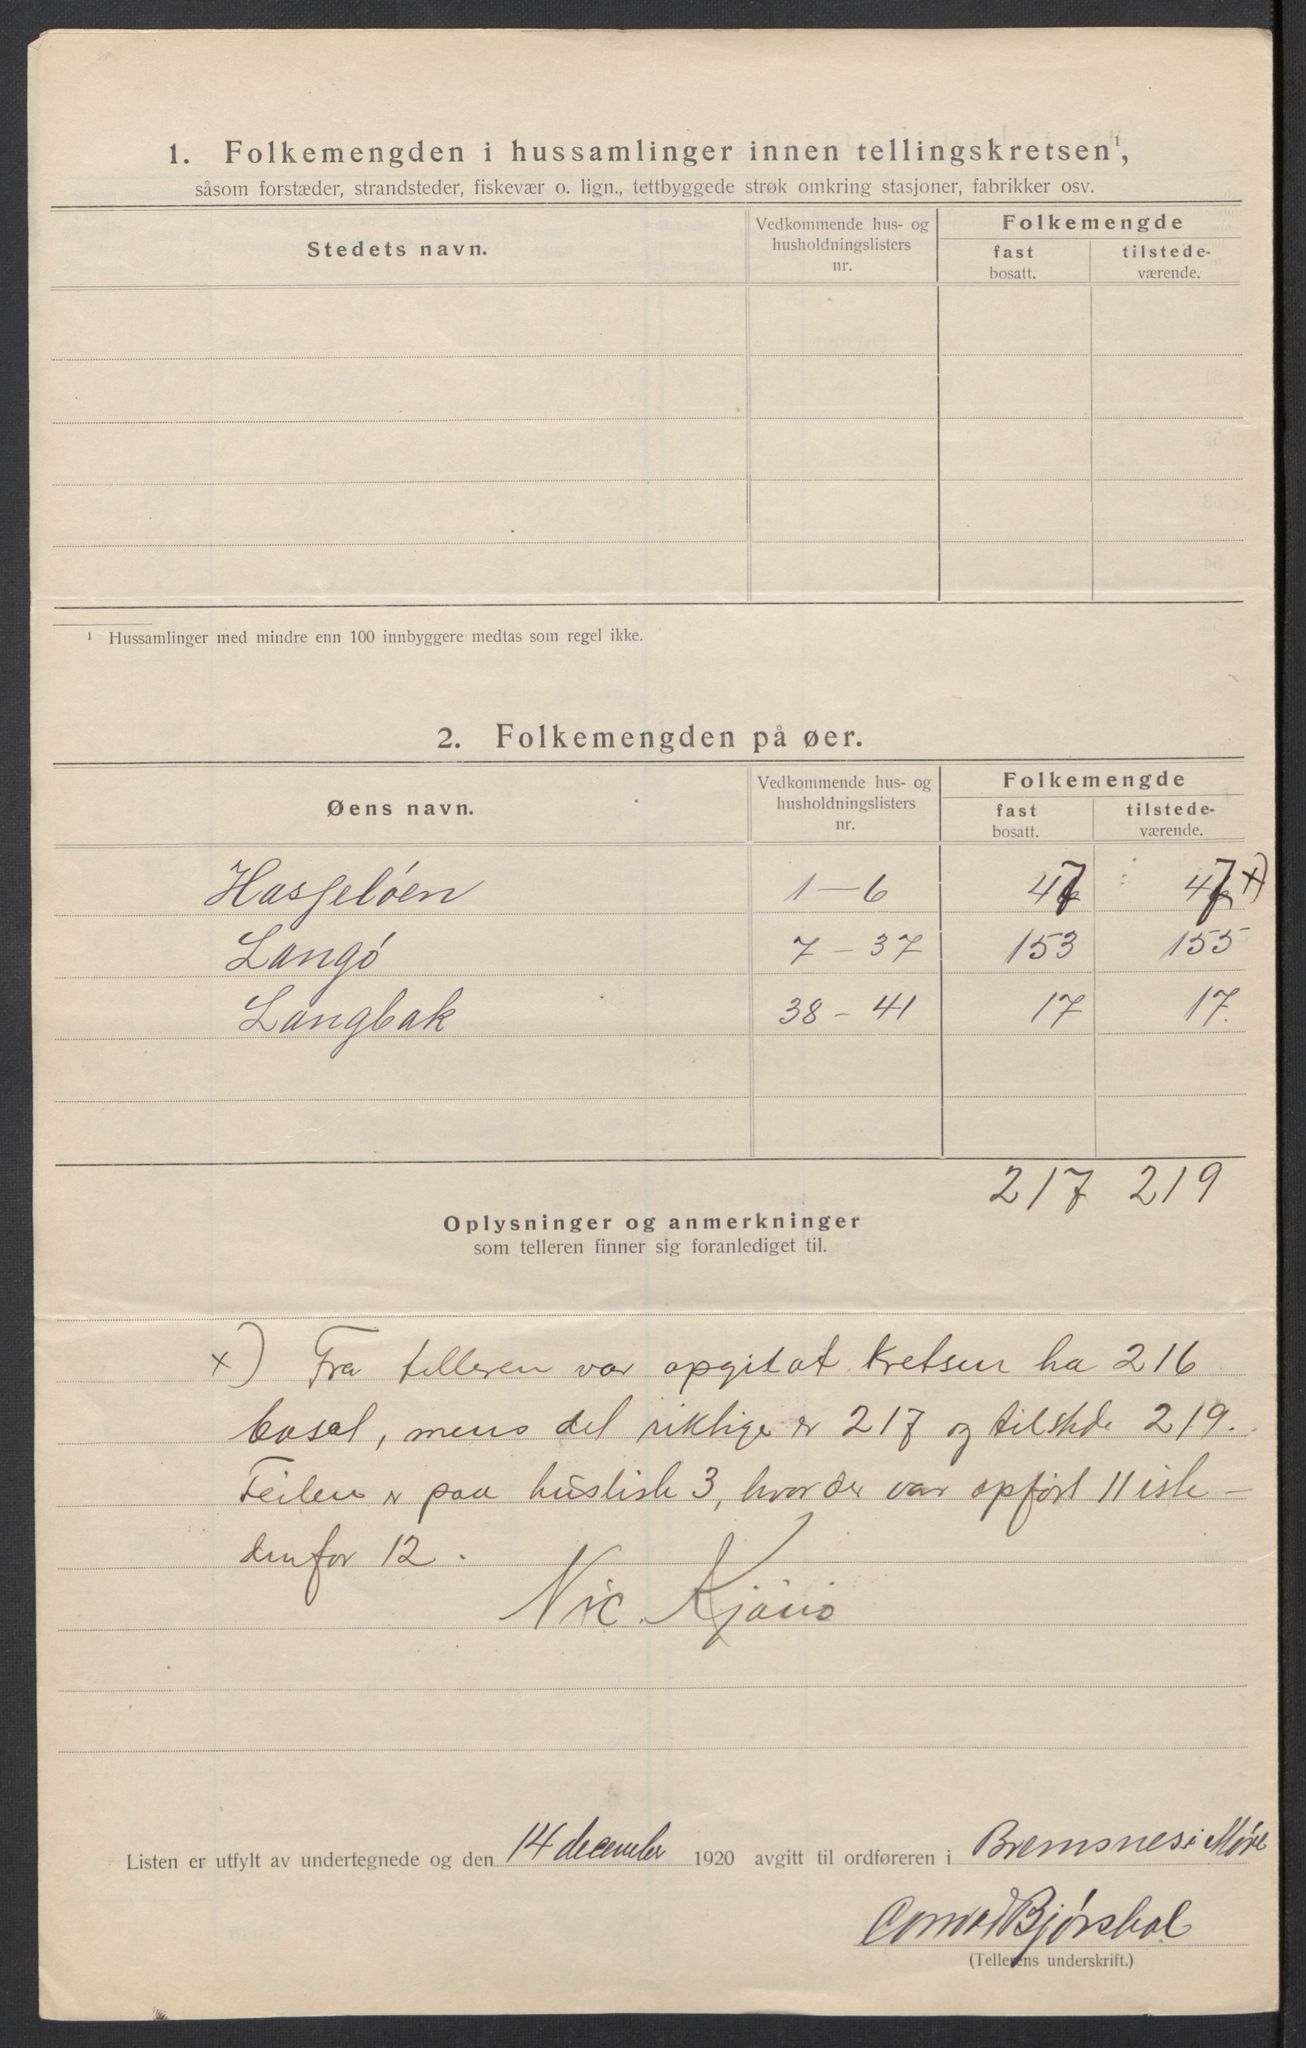 1. Folkemengden i hussamlinger innen tellingskretsen¹,
såsom forstæder, strandsteder, fiskevær o. lign., tettbyggede strøk omkring stasjoner, fabrikker osv.
Stedets navn. Vedkommende hus- og husholdningslisters nr. Folkemengde
fast bosatt. tilstede-værende.
¹ Hussamlinger med mindre enn 100 innbyggere medtas som regel ikke.
2. Folkemengden på øer.
Øens navn. Vedkommende hus- og husholdningslisters nr. Folkemengde
fast bosatt. tilstede-værende.
Hasseløen 1-6 47 47 x)
Langø 7-37 153 155
Langbak 38-41 17 17.
217 219
Oplysninger og anmerkninger
som telleren finner sig foranlediget til.
x) Fra telleren var opgit at kretsen ha 216
bosat, mens det riktige er 217 og tilstede 219.
Feilen er paa husliste 3, hvor der var opført 11 iste-
denfor 12.
Nic.
Listen er utfylt av undertegnede og den 14 december 1920 avgitt til ordføreren i Bremsnes i Møre
Conrad Bjørshol
(Tellerens underskrift.)